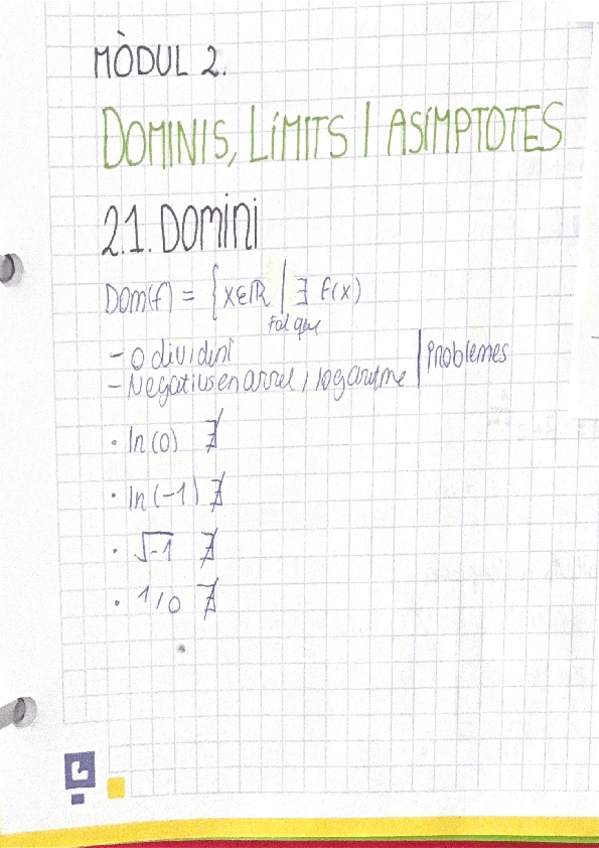 MÒDUL 2.
DOMINIS, LÍMITS I ASÍMPTOTES
2.1. DOMINI
Dom(f) = { x∈ℝ | ∃ f(x)
tal que
- 0 dividint
- Negatius en arrel / logaritme | Problemes
· ln(0) ∄
· ln(-1) ∄
· √-1 ∄
· 1/0 ∄